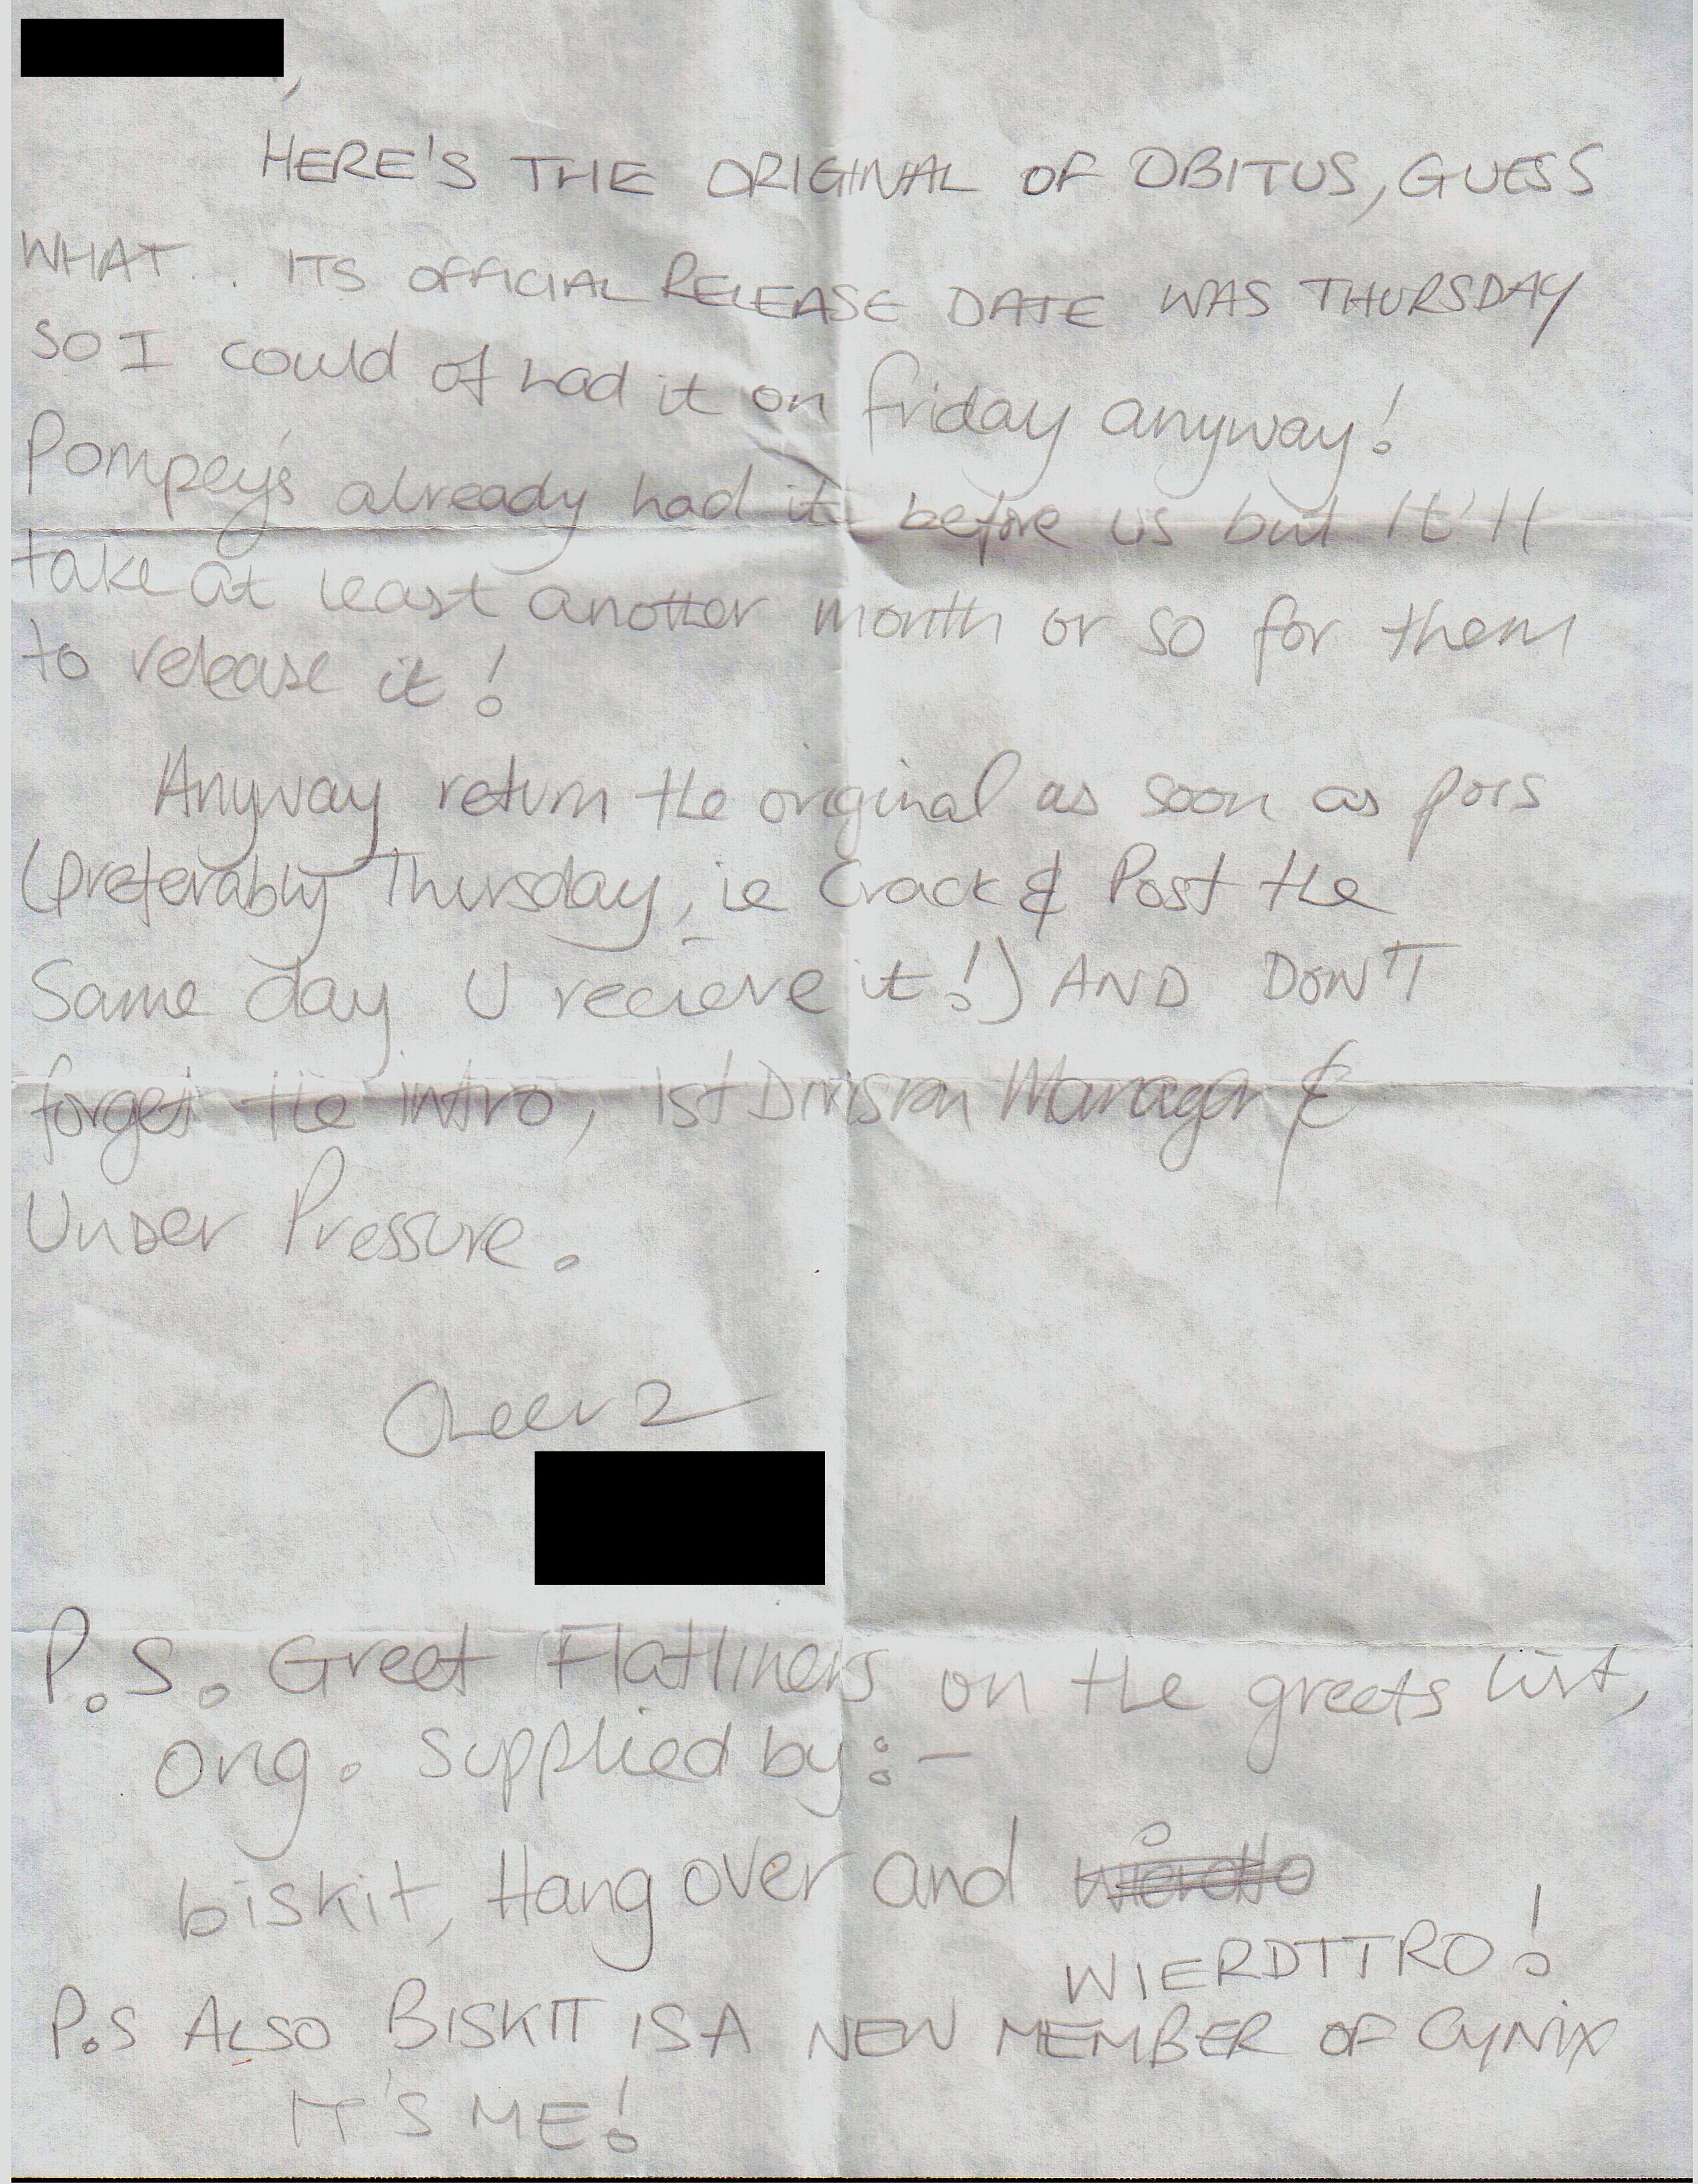 ,
HERE'S THE ORIGINAL OF OBITUS, GUESS
WHAT... ITS OFFICIAL RELEASE DATE WAS THURSDAY
SO I could of had it on friday anyway!
Pompey's already had it before us but It'll
take at least another month or so for them
to release it!
Anyway return the original as soon as poss
(preferably Thursday, ie Crack & Post the
Same day U recieve it!) AND DON'T
forget the intro, 1st Division Manager &
Under Pressure.
Cheerz
P.S. Greet Flatliners on the greets list,
Orig. Supplied by:-
biskit, Hangover and
WIERDTTRO!
P.S ALSO BISKIT IS A NEW MEMBER OF CYNIX
IT'S ME!